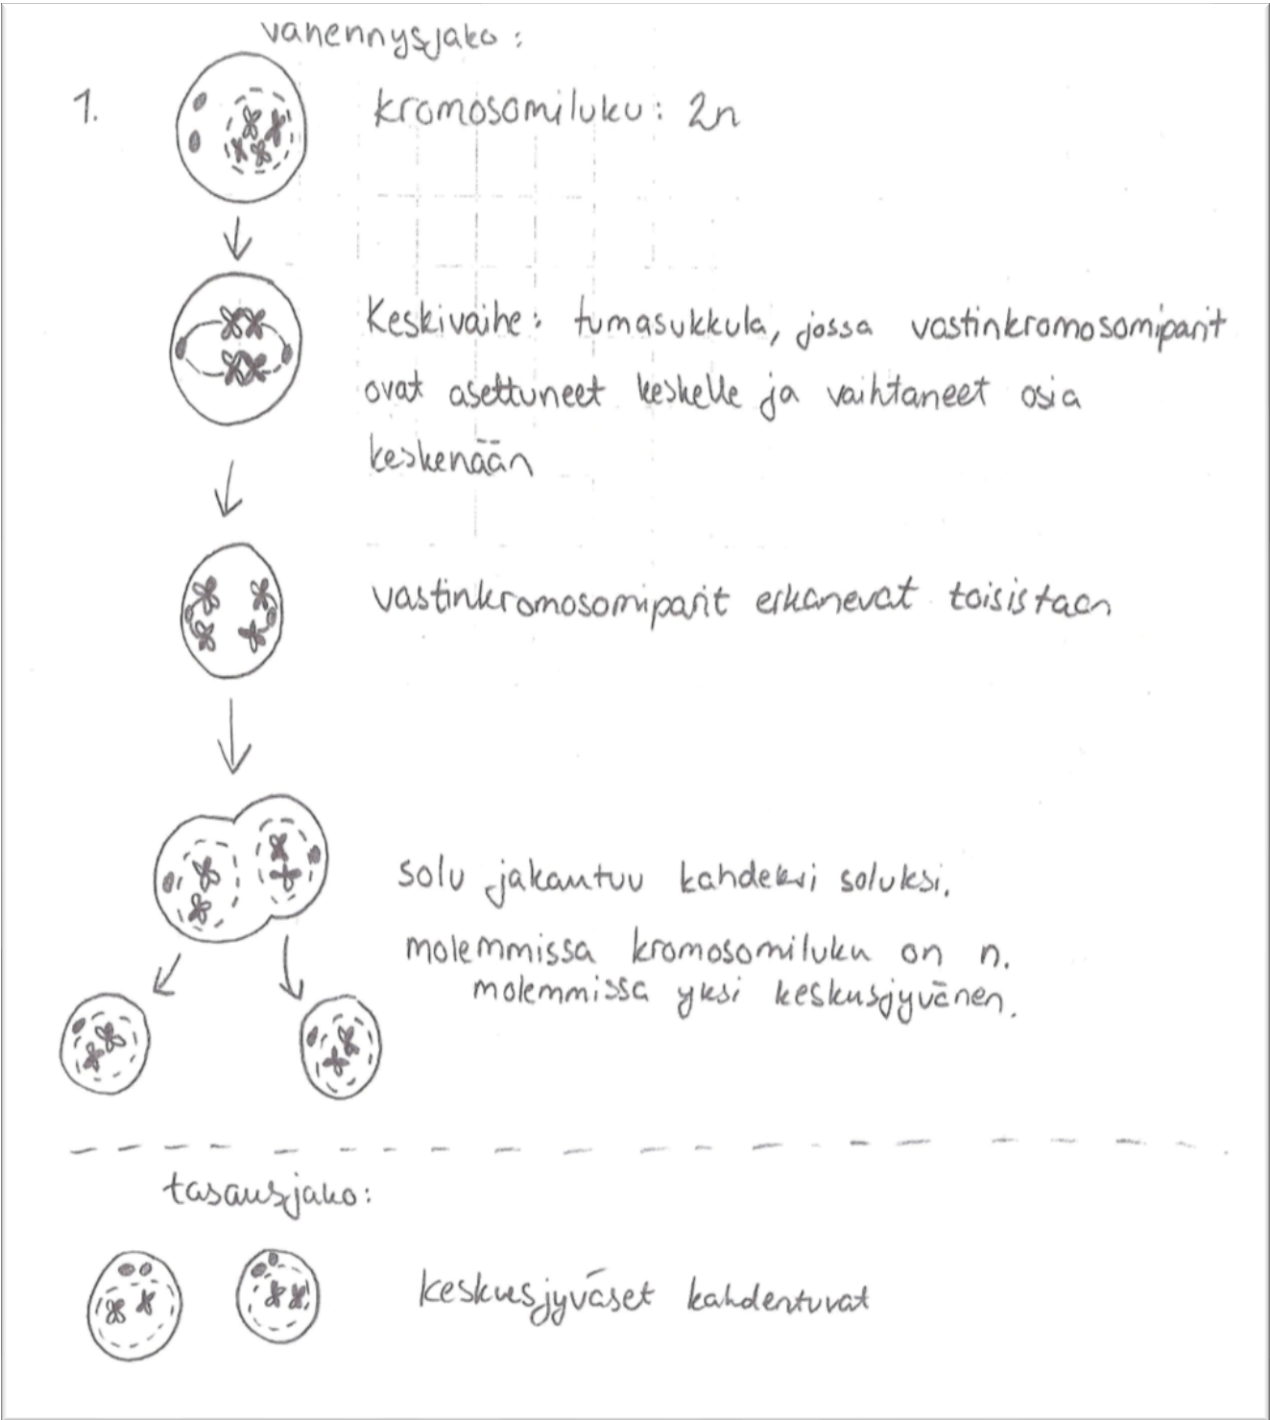 vähennysjako:
1.
kromosomiluku: 2n
Keskivaihe: tumasukkula, jossa vastinkromosomiparit
ovat asettuneet keskelle ja vaihtaneet osia
keskenään
vastinkromosomiparit erkanevat toisistaan
solu jakautuu kahdeksi soluksi.
molemmissa kromosomiluku on n.
molemmissa yksi keskusjyvänen.
tasausjako:
keskusjyväset kahdentuvat